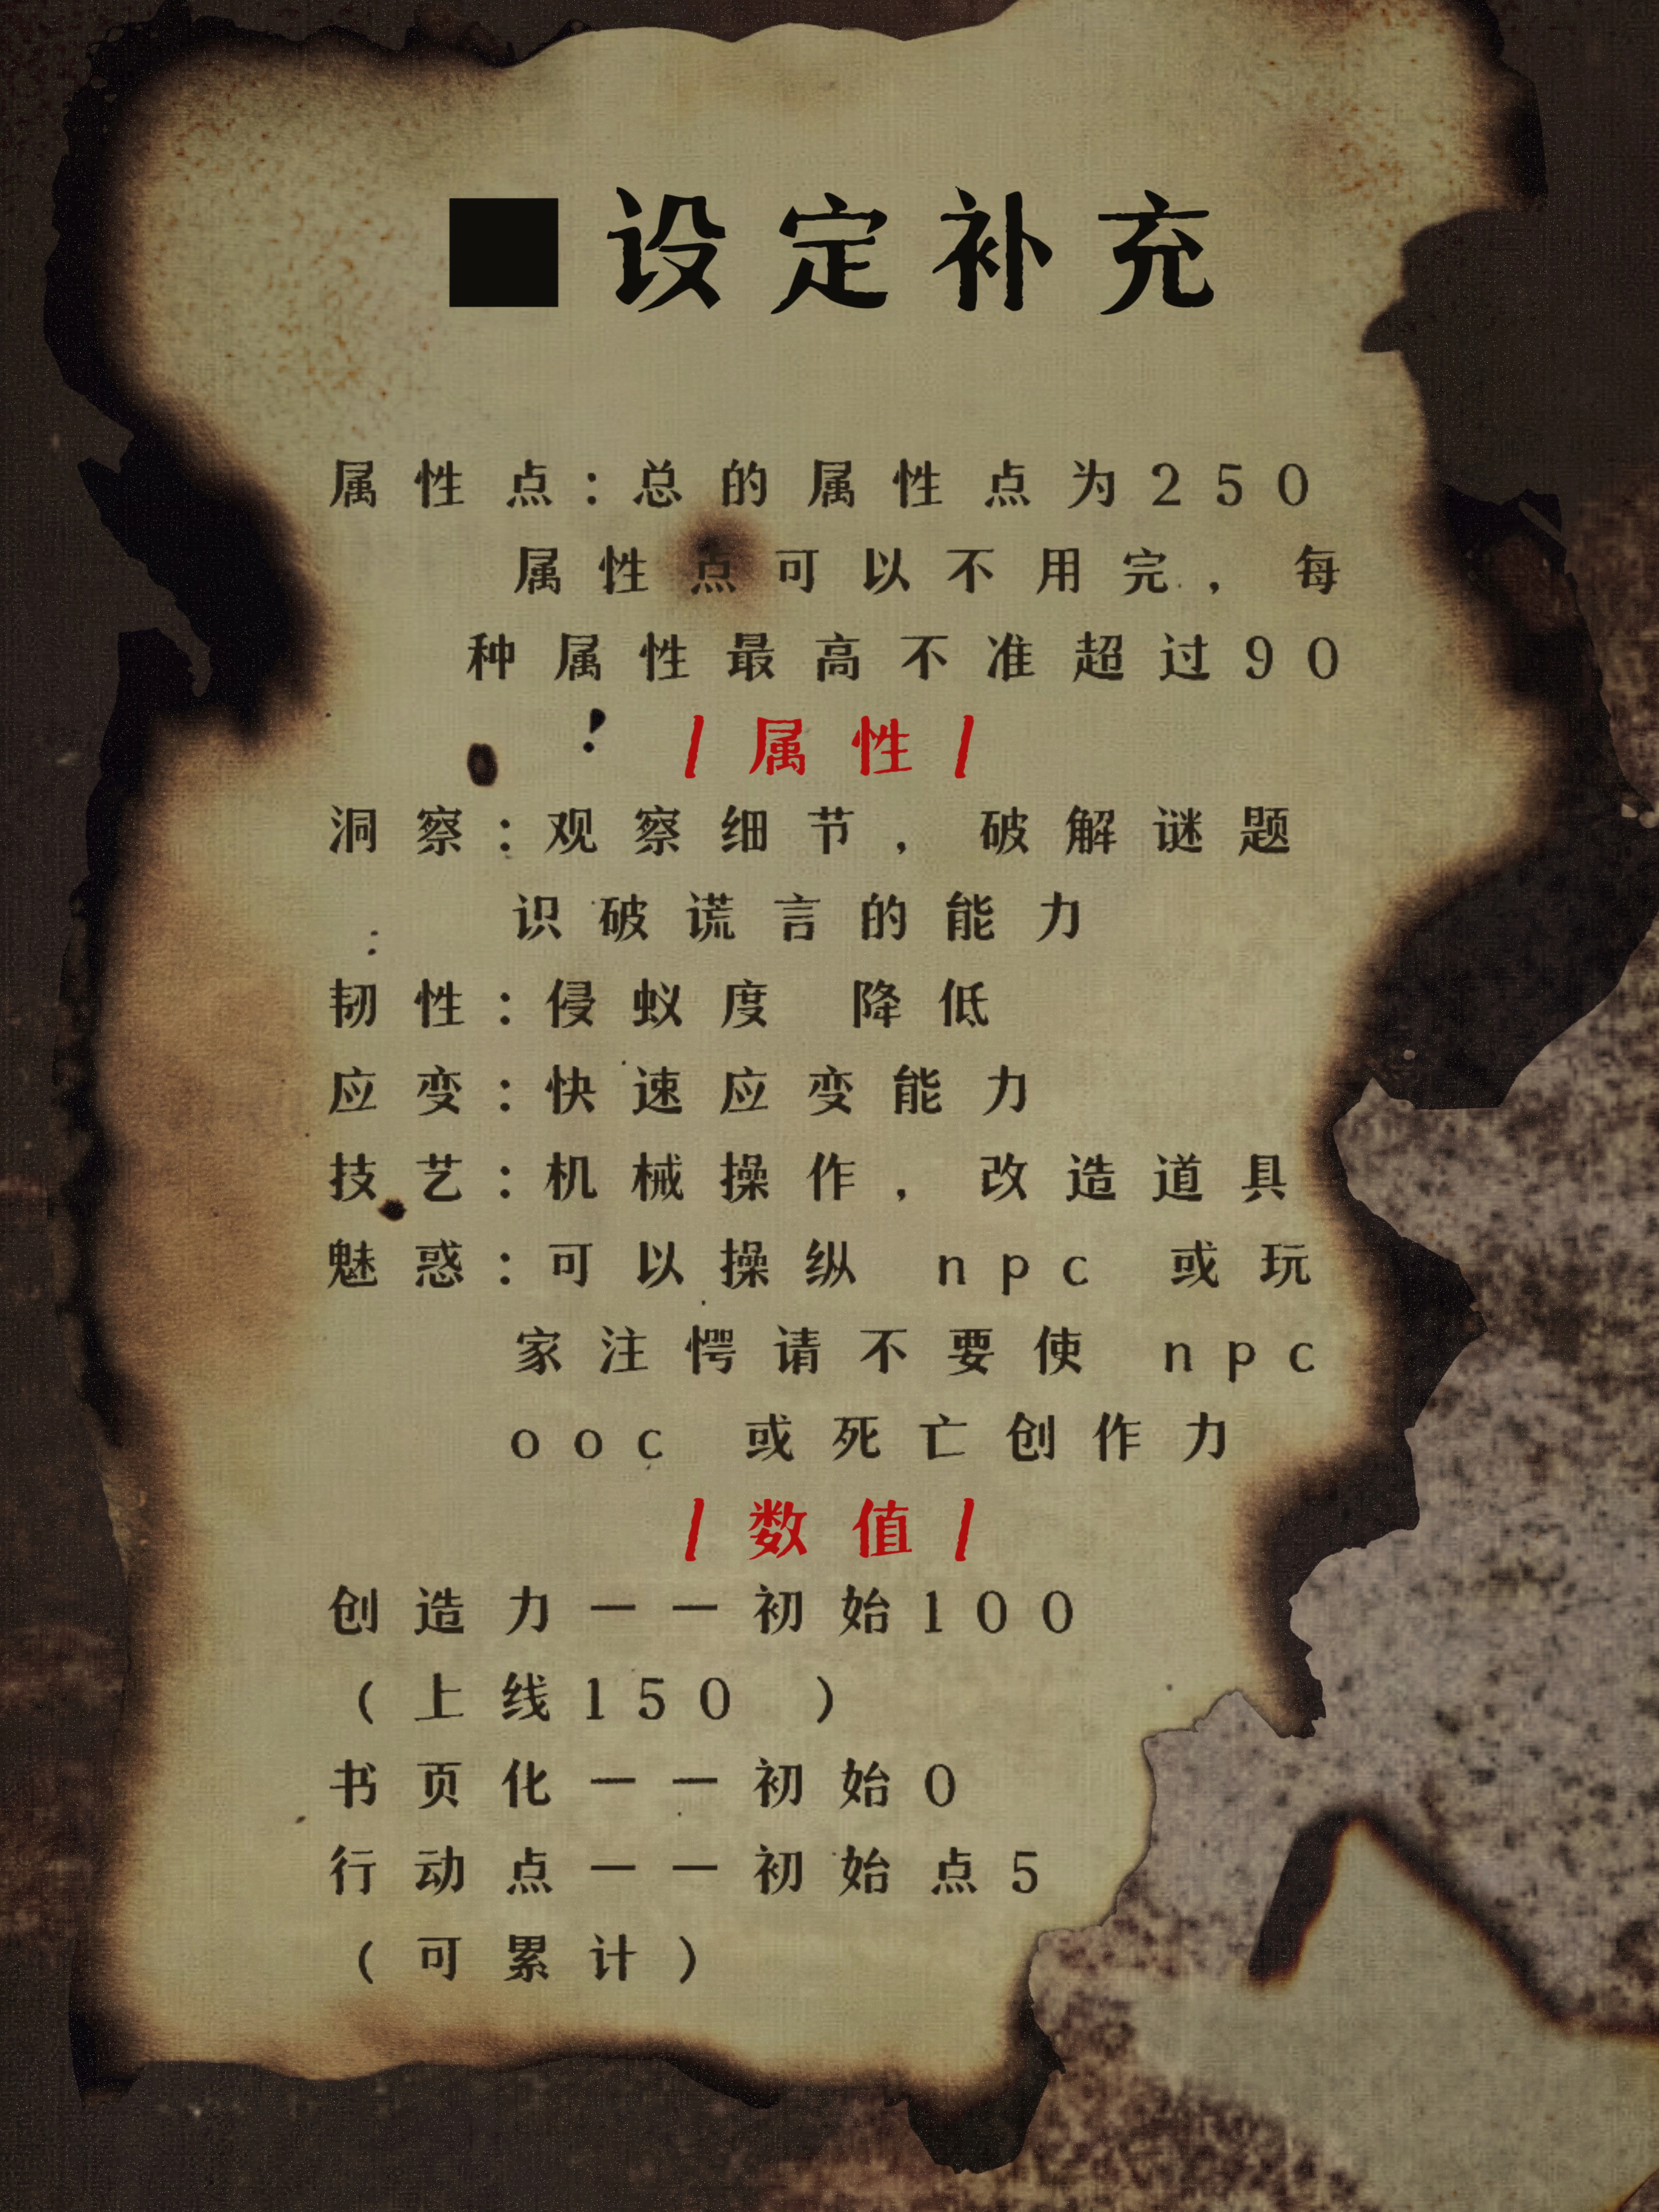 ■设定补充
属性点:总的属性点为250
属性点可以不用完,每
种属性最高不准超过90
!
|属性|
洞察:观察细节,破解谜题
识破谎言的能力
:
韧性:侵蚁度 降低
应变:快速应变能力
技艺:机械操作,改造道具
魅惑:可以操纵 npc 或玩
家注愕请不要使 npc
ooc 或死亡创作力
|数值|
创造力——初始100
(上线150 )
书页化——初始0
行动点——初始点5
(可累计)